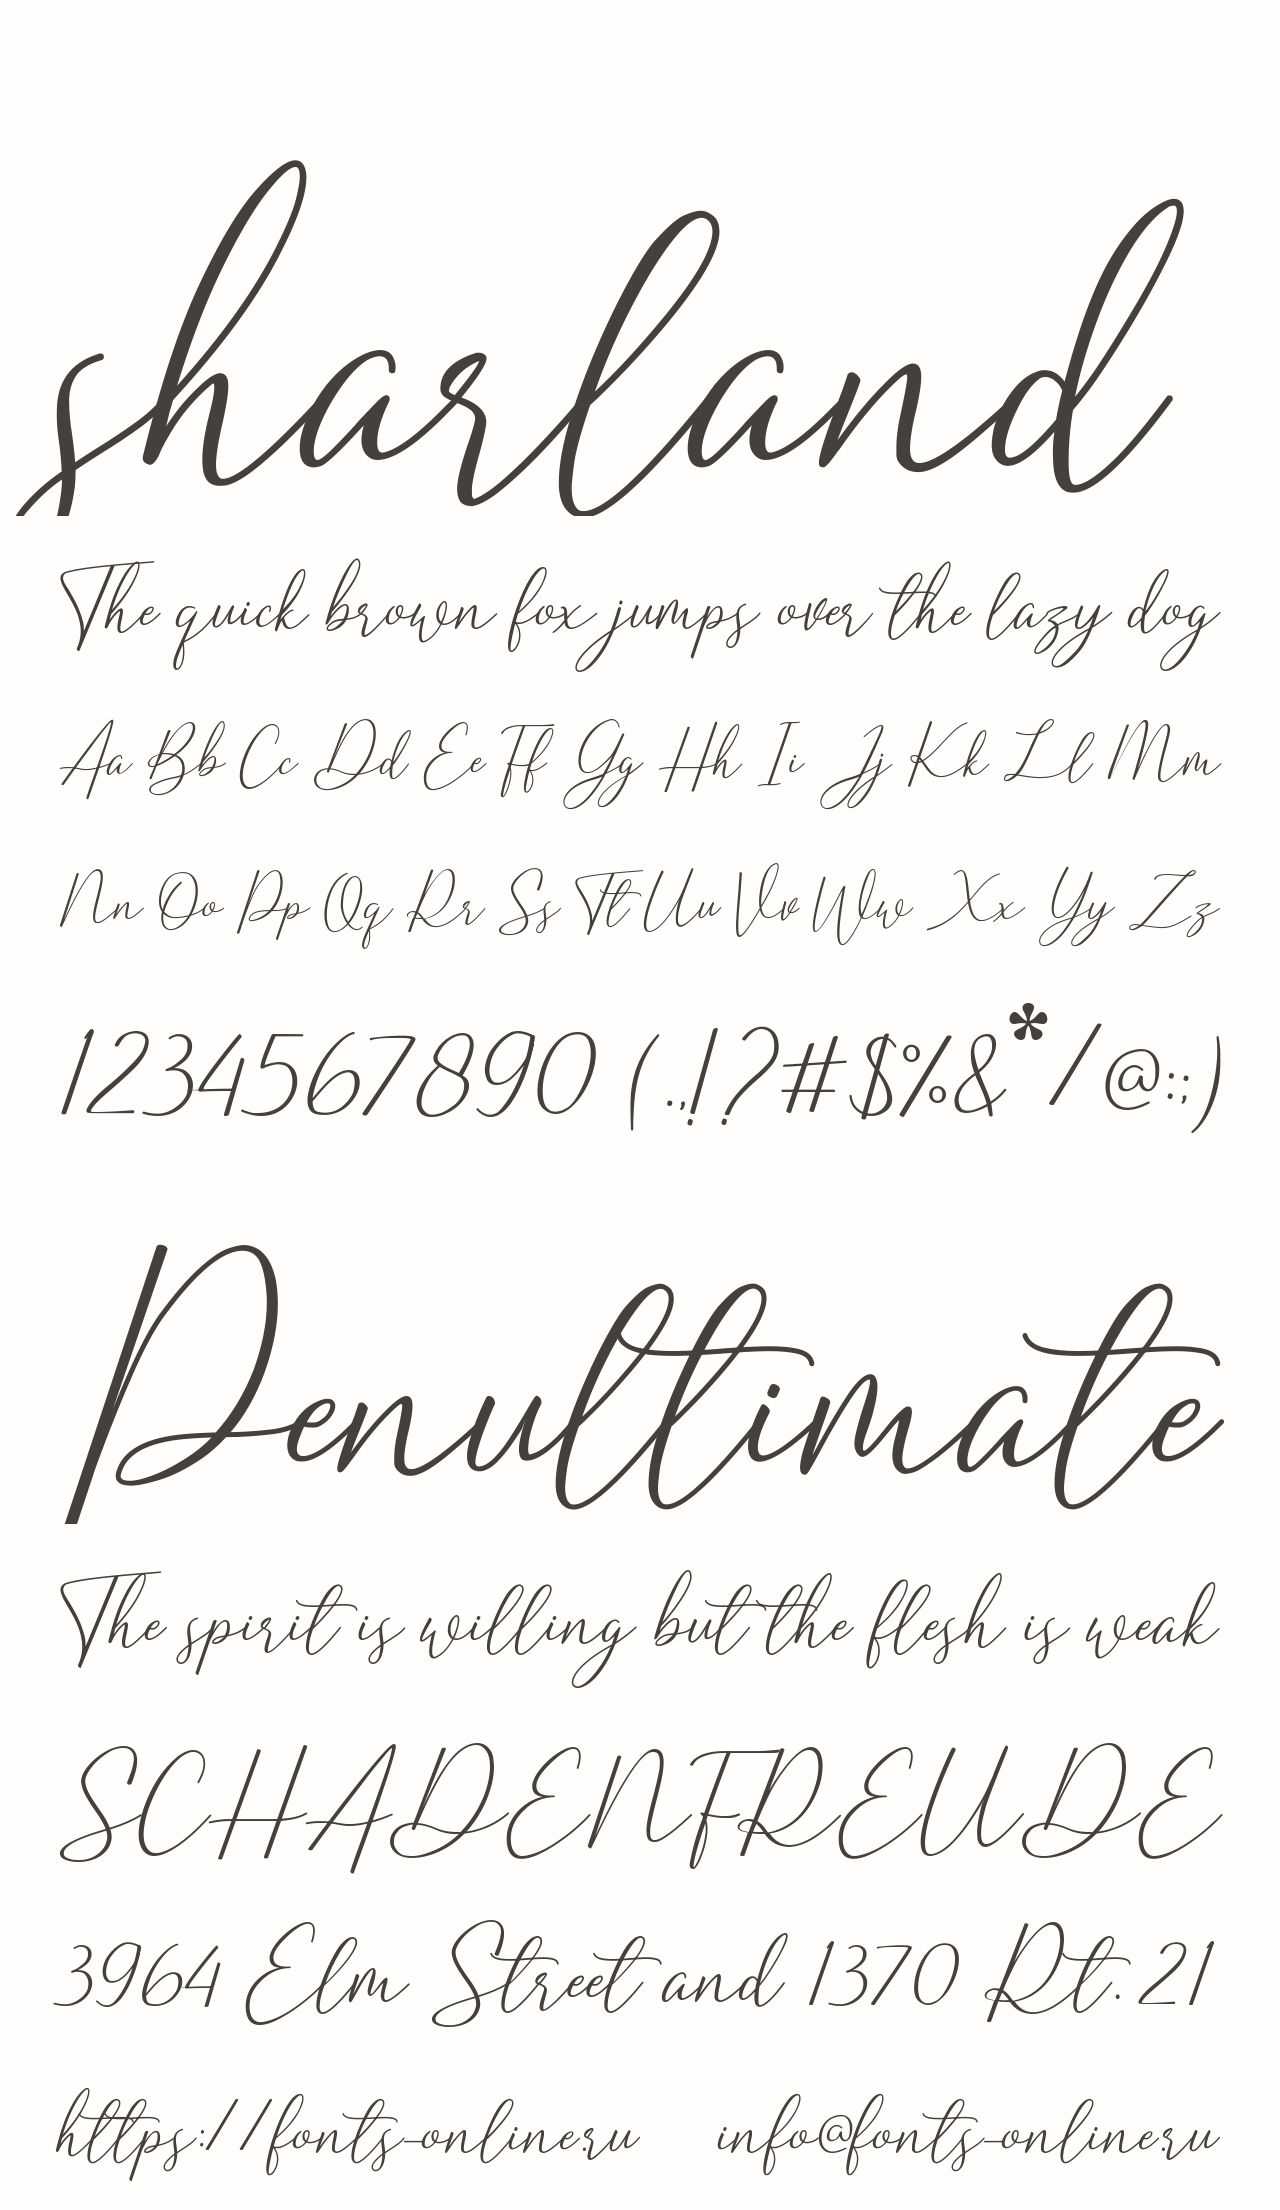 sharland
The quick brown fox jumps over the lazy dog
Aa Bb Cc Dd Ee Ff Gg Hh Ii Jj Kk Ll Mm
Nn Oo Pp Qq Rr Ss Tt Uu Vv Ww Xx Yy Zz
1234567890 (.,!?#$%&*/@:;)
Penultimate
The spirit is willing but the flesh is weak
SCHADENFREUDE
3964 Elm Street and 1370 Rt. 21
https://fonts-online.ru info@fonts-online.ru